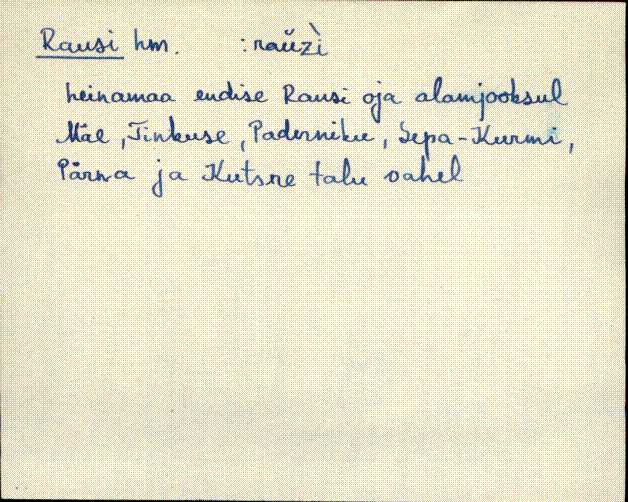 Rausi hm. :raŭzì
heinamaa endise Rausi oja alamjooksul
Mäe, Tinkuse, Paderniku, Sepa-Kurmi,
Pärna ja Kutsre talu vahel